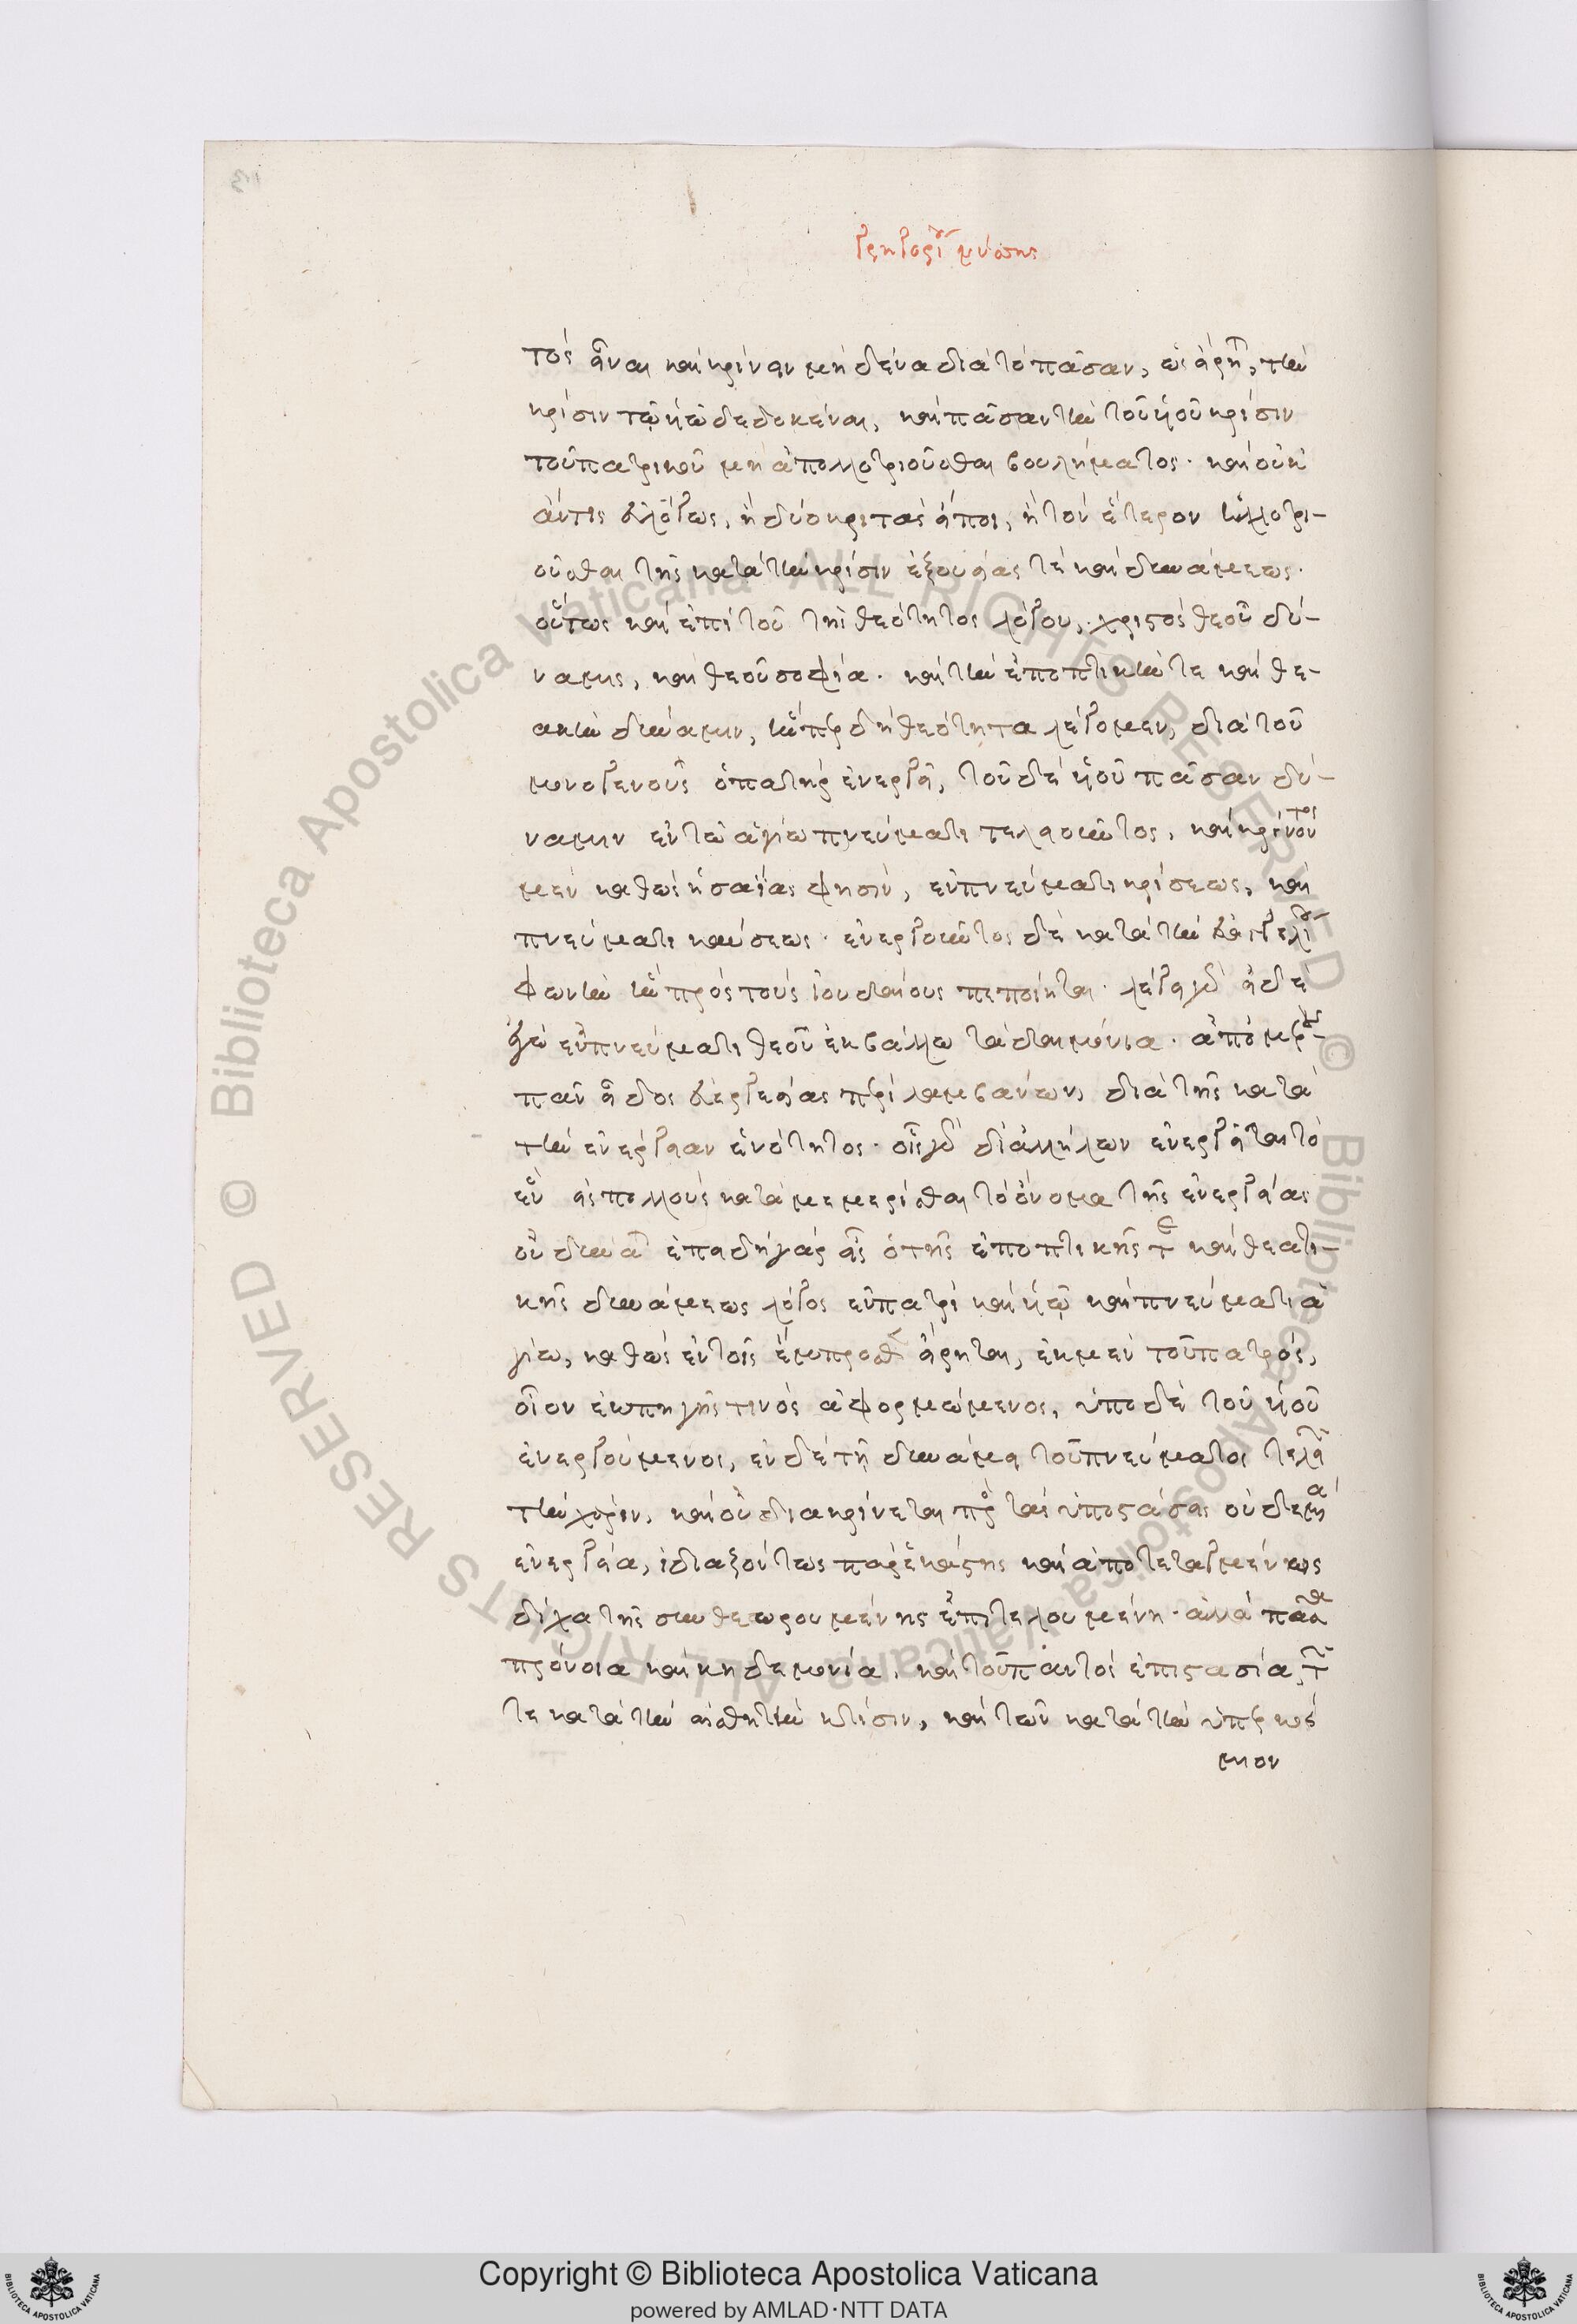 Γρηγορίου νύσης
τὸς εἶναι καὶ κρίνειν μηδένα διὰ τὸ πᾶσαν, ὡς εἴρηται, τὴν
κρίσιν τῷ υἱῷ δεδοκέναι, καὶ πᾶσαν τὴν τοῦ υἱοῦ κρίσιν
τοῦ πατρικοῦ μὴ ἀπαλλοτριοῦσθαι βουλήματος. καὶ οὐκ
ἄν τις εὐλόγως, ἢ δύο κριτὰς εἴποι, ἢ τὸν ἕτερον ἠλλοτρι-
οῦσθαι τῆς κατὰ τὴν κρίσιν ἐξουσίας τὲ καὶ δυνάμεως.
οὕτως καὶ ἐπὶ τοῦ τῆς θεότητος λόγου, χριστὸς θεοῦ δύ-
ναμις, καὶ θεοῦ σοφία. καὶ τὴν ἐποπτικήν τε καὶ θε-
ατικὴν δύναμιν, ἥνπερ δὴ θεότητα λέγομεν, διὰ τοῦ
μονογενοῦς ὁ πατὴρ ἐνεργεῖ, τοῦ δὲ υἱοῦ πᾶσαν δύ-
ναμιν ἐν τῷ ἁγίω πνεύματι τελειοῦντος, καὶ κρίνοντος
μὲν καθὼς ἡσαΐας φησὶν, ἐν πνεύματι κρίσεως, καὶ
πνεύματι καύσεως. ἐνεργοῦντος δὲ κατὰ τὴν εὐαγγελίου
φωνὴν ἣν πρὸς τοὺς ἰουδαίους πεποίηται. λέγει γὰρ εἰ δὲ
ἐγὼ ἐν πνεύματι θεοῦ ἐκβάλλω τὰ δαιμόνια. ἀπὸ μέρους
πᾶν εἶδος εὐεργεσίας περιλαμβάνων, διὰ τῆς κατὰ
τὴν ἐνέργειαν ἑνότητος. οἷς γὰρ δι ἀλλήλων ἐνεργεῖται τὸ
ἓν εἰς πολλοὺς καταμεμερίσθαι τὸ ὄνομα τῆς ἐνεργείας
οὐ δύναται ἐπειδὴ γὰρ εἷς ὁ τῆς ἐποπτικῆς τε καὶ θεατι-
κῆς δυνάμεως λόγος ἐν πατρὶ καὶ υἱῷ καὶ πνεύματι ἁ
γίω, καθὼς ἐν τοῖς ἔμπροσθεν εἴρηται, ἐκ μὲν τοῦ πατρός,
οἷον ἐκ πηγῆς τινὸς ἀφορμώμενος, ὑπὸ δὲ τοῦ υἱοῦ
ἐνεργούμενος, ἐν δὲ τῇ δυνάμει τοῦ πνεύματος τελεῖ
τὴν χάριν, καὶ οὐ διακρίνεται πρὸς τὰς ὑποστάσεις οὐδεμία
ἐνέργεια, ἰδιαζόντως παρ ἑκάστης καὶ ἀποτεταγμένως
δίχα τῆς συνθεωρουμένης ἐπιτελουμένη. ἀλλὰ πᾶσα
πρόνοια καὶ κηδεμονία, καὶ τοῦ παντὸς ἐπιστασία τῶν
τε κατὰ τὴν αἰσθητὴν κτίσιν, καὶ τῶν κατὰ τὴν ὑπερκόσ
μιον
Copyright © Biblioteca Apostolica Vaticana
powered by AMLAD·NTT DATA